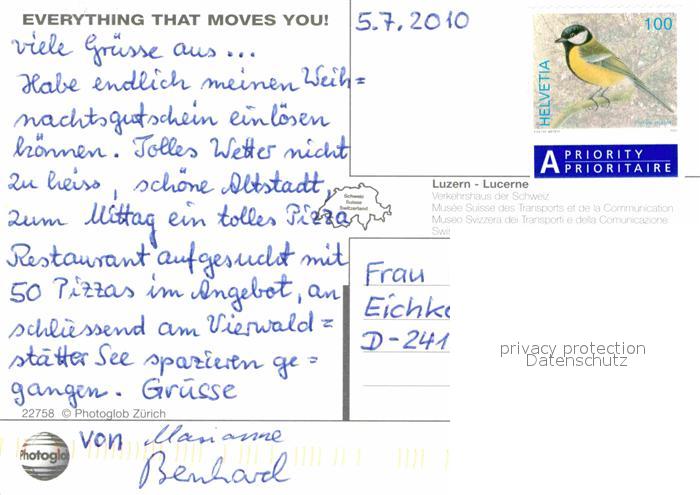 EVERYTHING THAT MOVES YOU!
viele Grüsse aus ...
Habe endlich meinen Weih=
nachtsgutschein einlösen
können. Tolles Wetter nicht
zu heiss, schöne Altstadt,
zum Mittag ein tolles Pizza
Restaurant aufgesucht mit
50 Pizzas im Angebot, an
schliessend am Vierwald=
stätter See spazieren ge=
gangen. Grüsse
22758 © Photoglob Zürich
von Marianne
Bernhard
Photoglob
5.7.2010
100
HELVETIA
A PRIORITY
PRIORITAIRE
Schweiz
Suisse
Switzerland
Luzern - Lucerne
Verkehrshaus der Schweiz
Musée Suisse des Transports et de la Communication
Museo Svizzera dei Transporti e della Comunicazione
Swis
Frau
Eichko
D-241
privacy protection
Datenschutz